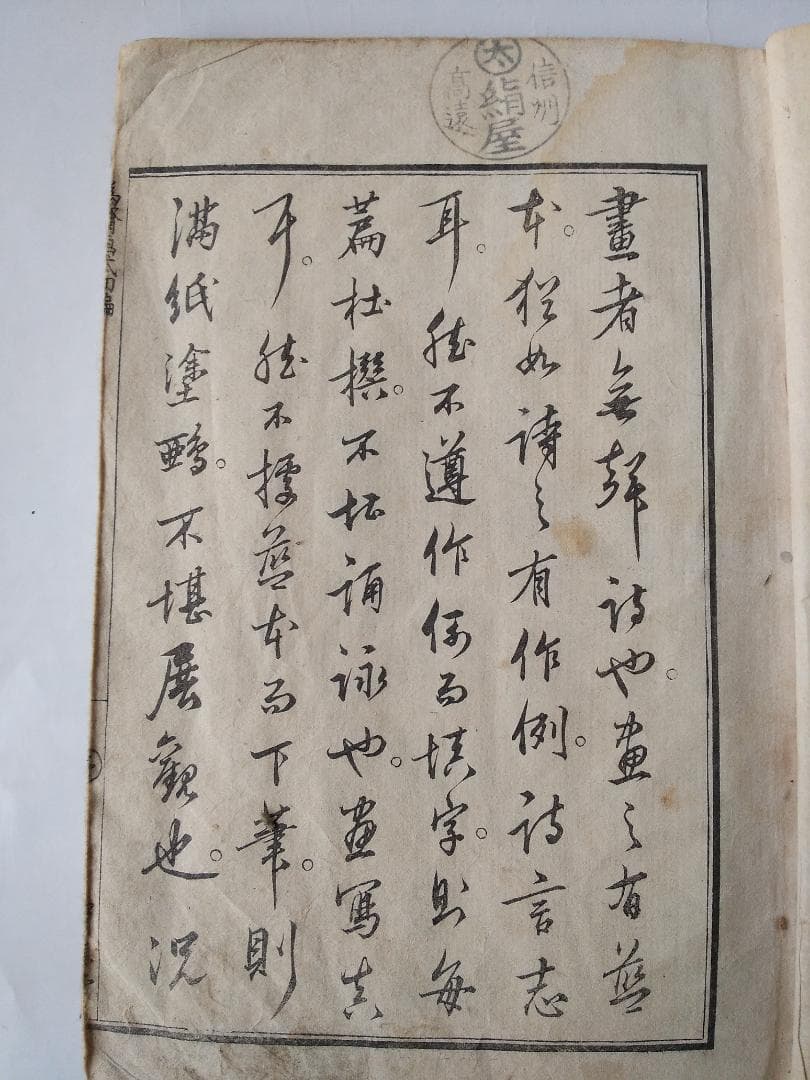 信州
太
絹屋
高遠
畫者無聲詩也。畫之有藍
本。猶如詩之有作例。詩言志
耳。然不遵作例而填字。則每
篇杜撰。不堪誦詠也。畫寫真
耳。然不據藍本而下筆。則
滿紙塗鴉。不堪展觀也。況